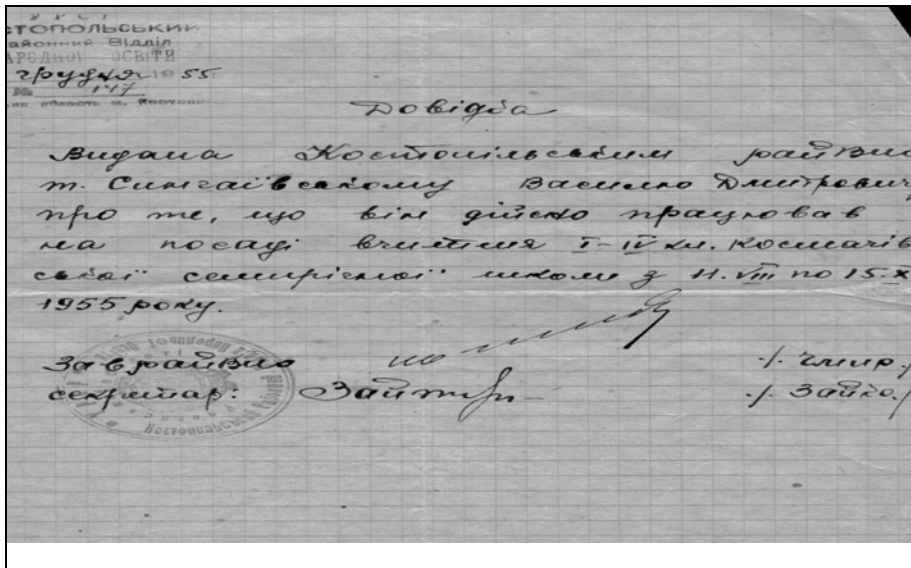 У Р С Р
СТОПОЛЬСЬКИЙ
районний Відділ
НАРОДНОЇ ОСВІТИ
грудня 1955
№ 147
область м.
Довідка
Видана Костопільським райвно
т. Сингаївському Василю Дмитрович
про те, що він дійсно працював
на посаді вчителя І-ІV кл.
ської семирічної школи з 11.VIII по 15.X
1955 року.
Зав райвно /. Чмир./
секретар: Зайко /. Зайко./